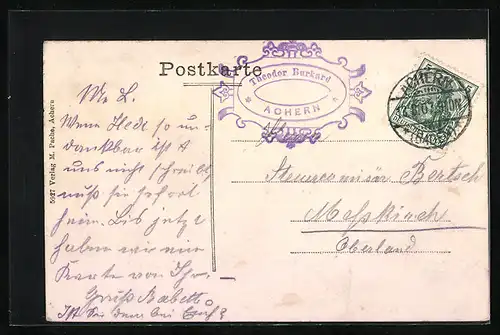 Postkarte
Theodor Burkard
ACHERN
ACHERN
(BADEN)
5527 Verlag M. Pechs, Achern
M. L.
Wenn Hedi so un-
dankbar ist &
uns nicht schreibt
muß sie sofort
heim. Bis jetzt
haben wir eine
Karte von Ihr.
Gruß Babette
Ist Sie denn bei Euch?
Steuercommissär Bertsch
Messkirch
Oberland